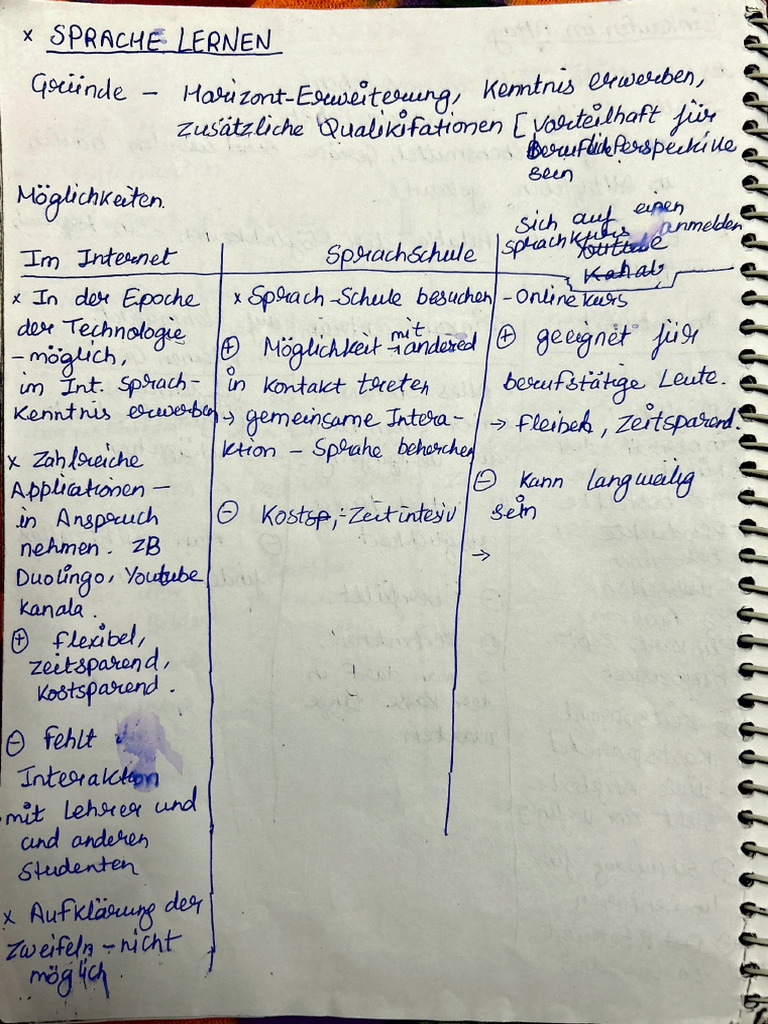 x SPRACHE LERNEN
Gründe – Harizont-Erweiterung, Kenntnis erwerben,
zusätzliche Qualikifationen [vorteilhaft für
Berufliche Perspektive
sein
Möglichkeiten.
Im Internet
x In der Epoche
der Technologie
– möglich,
im Int. Sprach-
Kenntnis erwerben
x Zahlreiche
Applicationen –
in Anspruch
nehmen. ZB
Duolingo, Youtube
Kanala.
⊕ flexibel,
zeitsparend,
Kostsparend.
⊖ fehlt
Interaktion
mit Lehrer und
und anderen
Studenten
x Aufklärung der
Zweifeln – nicht
möglich
Sprachschule
x Sprach-Schule besuchen
⊕ Möglichkeit mit → andered
in kontakt treten
→ gemeinsame Intera-
ktion – Sprahe beherchen
⊖ Kostsp,-Zeitintesiv
sich auf einen
sprachkurs anmelden
Youtube
Kanal
- Onlinekurs
⊕ geeignet für
berufstätige Leute.
→ fleibek, zeitsparend.
⊖ kann langwalig
sein
→